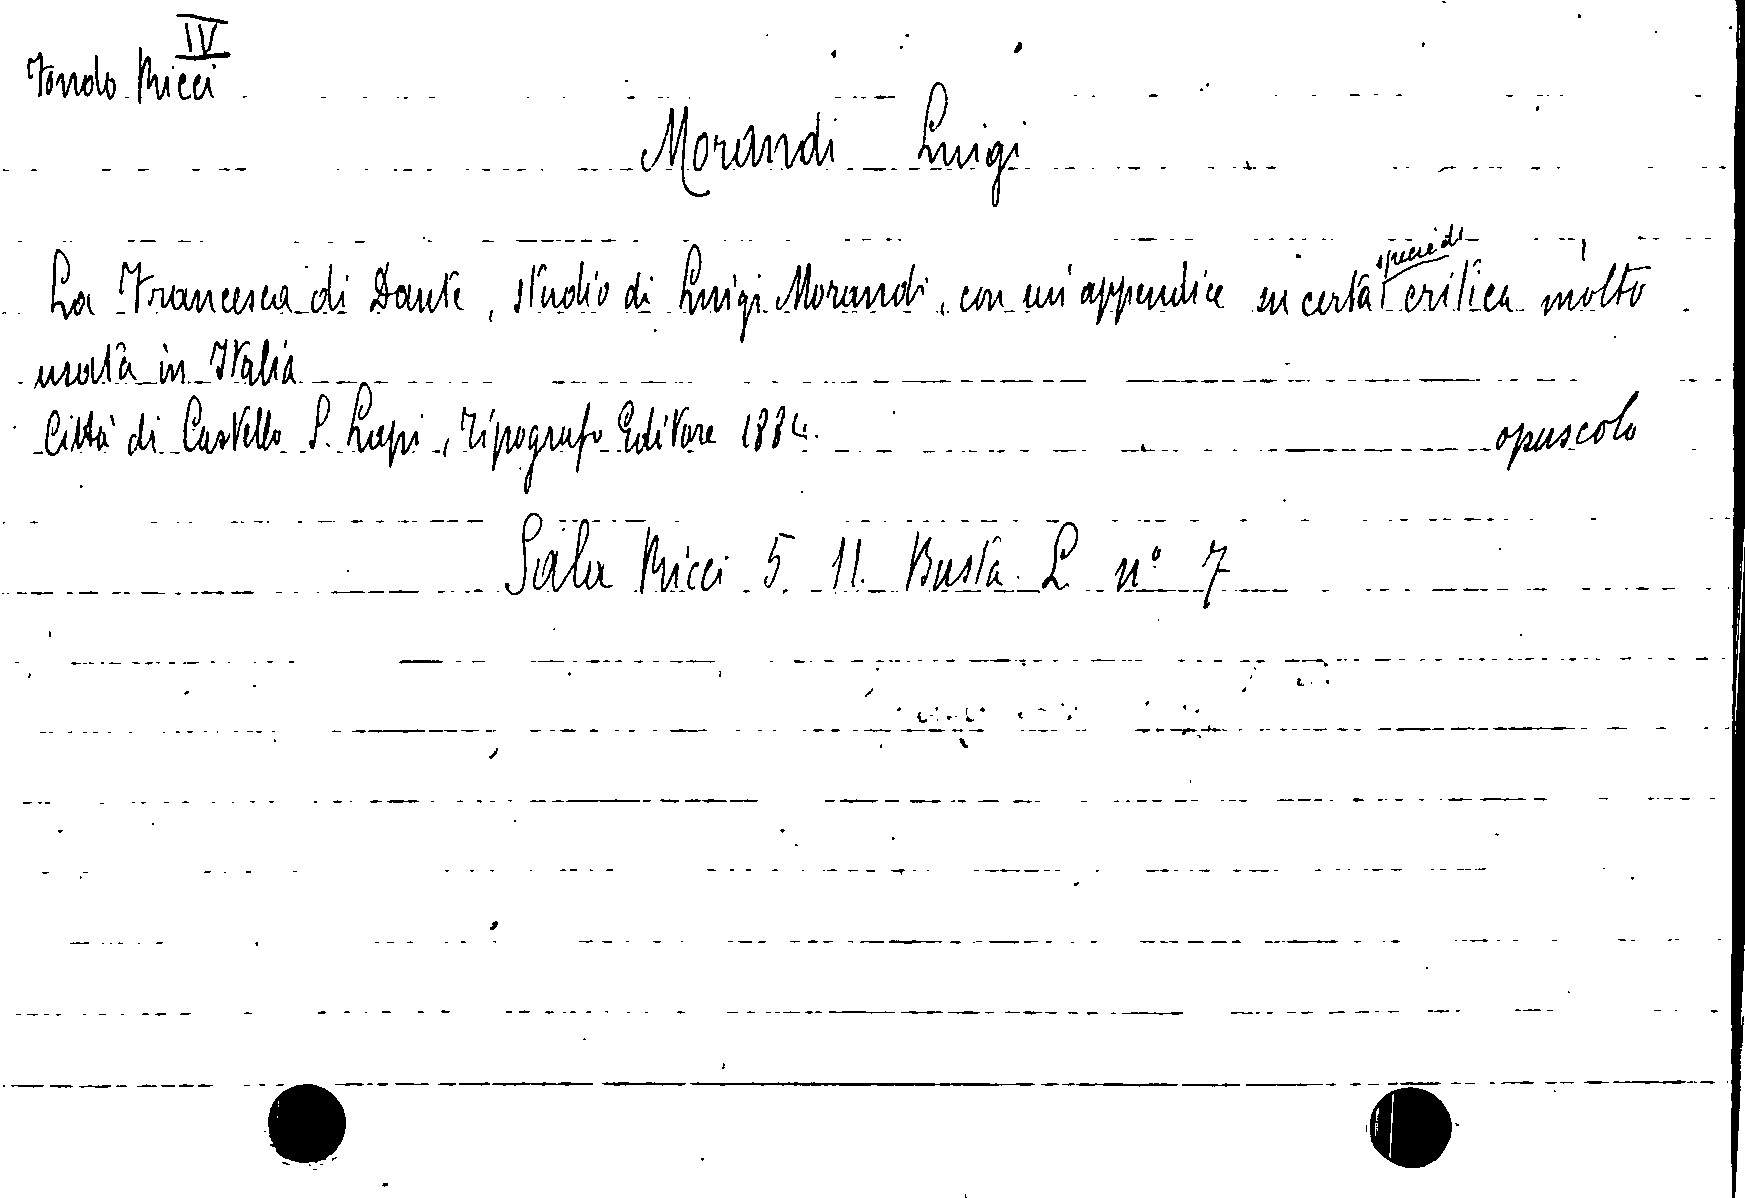 IV
Fondo Ricci
Morandi Luigi
specie di
La Francesca di Dante, studio di Luigi Morandi, con un'appendice su certa critica molto
usata in Italia
Città di Castello S. Lapi, Tipografo Editore 1884.
opuscolo
Sala Ricci 5. 11. Busta L n° 7